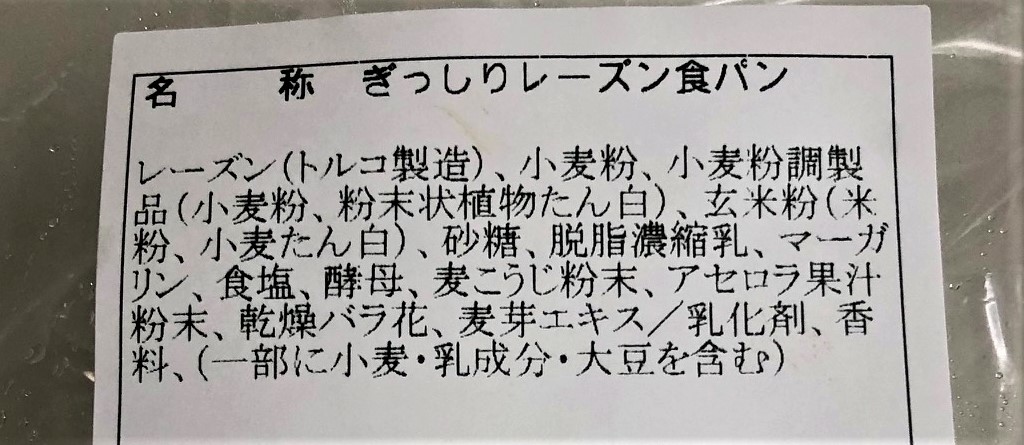 名　　称　ぎっしりレーズン食パン
レーズン(トルコ製造)、小麦粉、小麦粉調製
品(小麦粉、粉末状植物たん白)、玄米粉(米
粉、小麦たん白)、砂糖、脱脂濃縮乳、マーガ
リン、食塩、酵母、麦こうじ粉末、アセロラ果汁
粉末、乾燥バラ花、麦芽エキス／乳化剤、香
料、(一部に小麦・乳成分・大豆を含む)